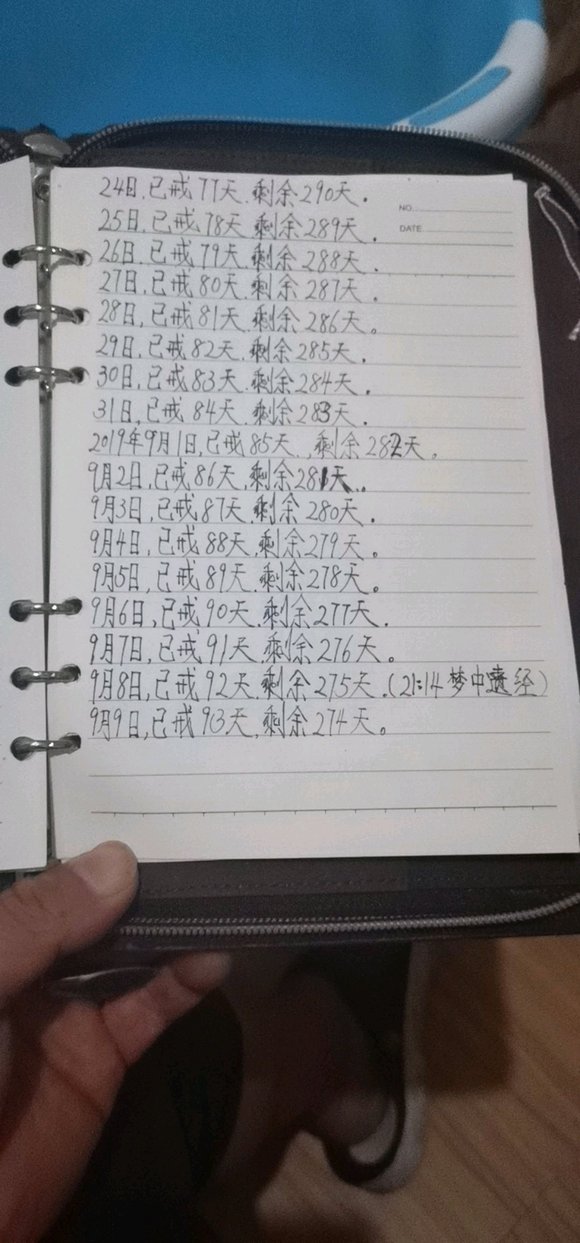 24日,已戒77天,剩余290天。
NO.
25日,已戒78天,剩余289天。
DATE
26日,已戒79天,剩余288天。
27日,已戒80天,剩余287天。
28日,已戒81天,剩余286天。
29日,已戒82天,剩余285天。
30日,已戒83天,剩余284天。
31日,已戒84天,剩余283天。
2019年9月1日,已戒85天,剩余282天。
9月2日,已戒86天,剩余281天。
9月3日,已戒87天,剩余280天。
9月4日,已戒88天,剩余279天。
9月5日,已戒89天,剩余278天。
9月6日,已戒90天,剩余277天。
9月7日,已戒91天,剩余276天。
9月8日,已戒92天,剩余275天.(21:14梦中遗经)
9月9日,已戒93天,剩余274天。